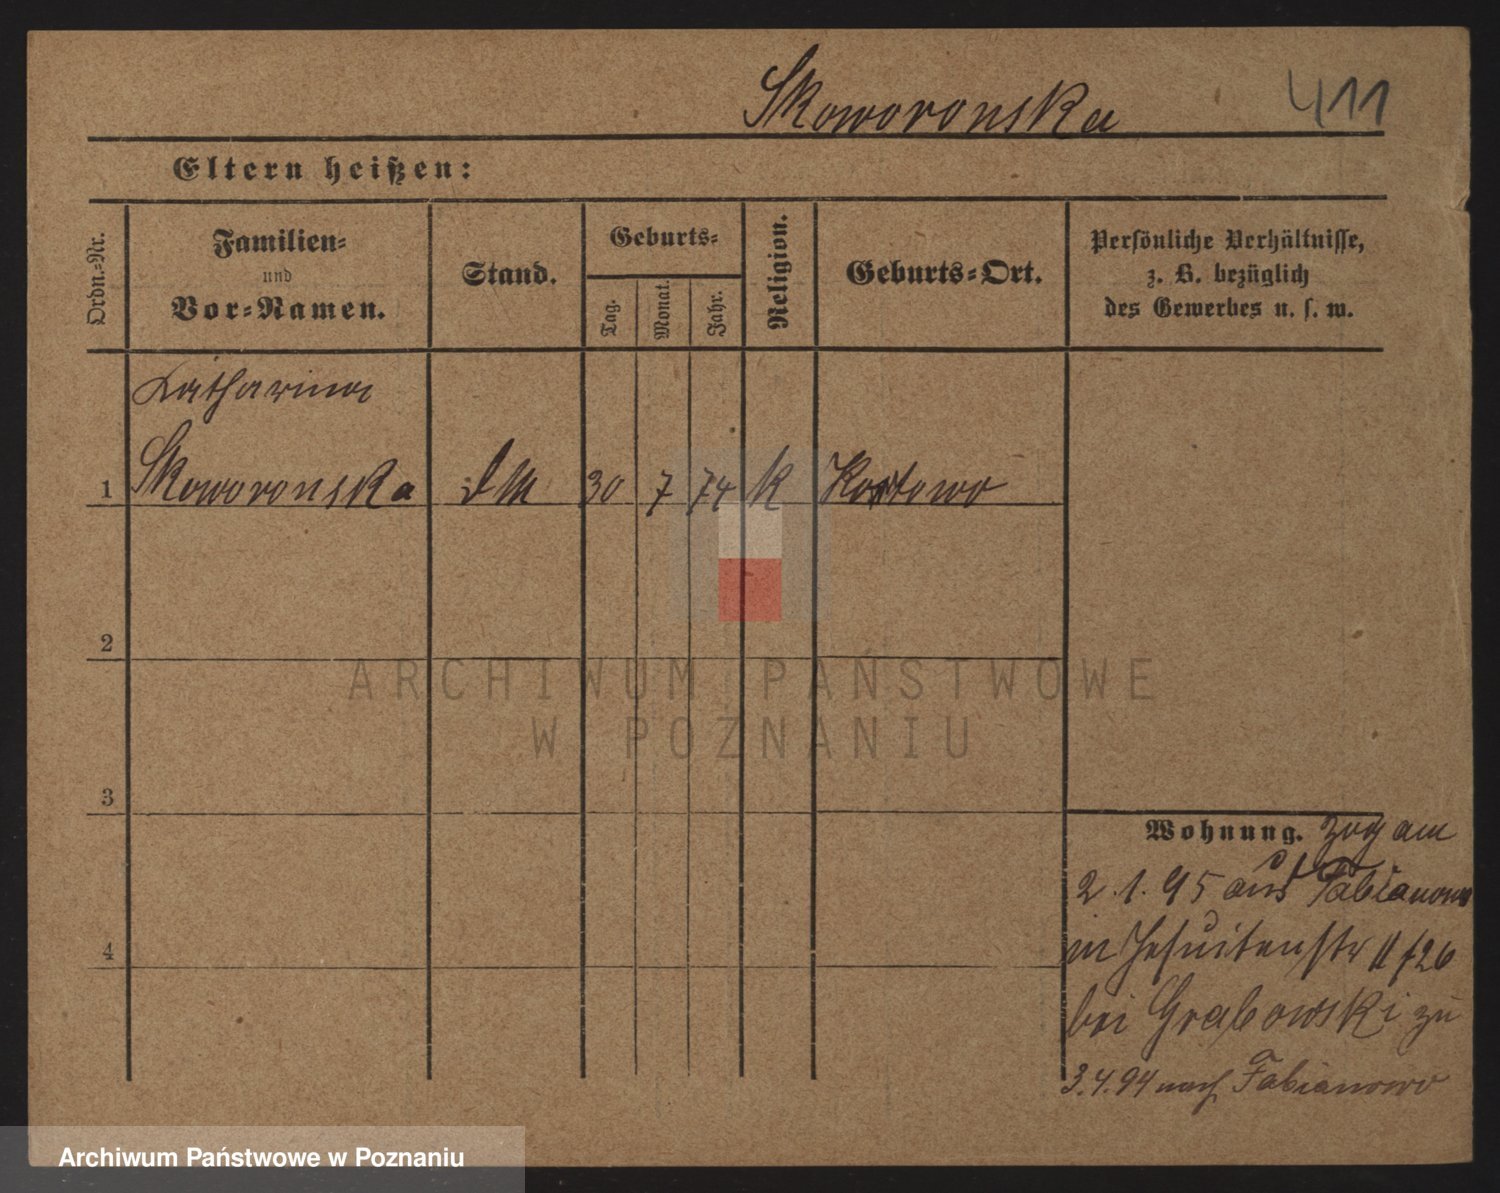 Skoworonska 411
Eltern heißen:
Ordn.=Nr.
Familien=
und
Vor=Namen.
Stand.
Geburts=
Tag.
Monat.
Jahr.
Religion.
Geburts=Ort.
Persönliche Verhältnisse,
z. B. bezüglich
des Gewerbes u. s. w.
Katharina
1 Skoworonska dM 30 7 74 k
2
3
4
Wohnung. zog am
2.1.95 aus Fabianowo
in Jesuitenstr
bei Grabowski zu
3.4.94 nach Fabianowo
ARCHIWUM PAŃSTWOWE
W POZNANIU
Archiwum Państwowe w Poznaniu